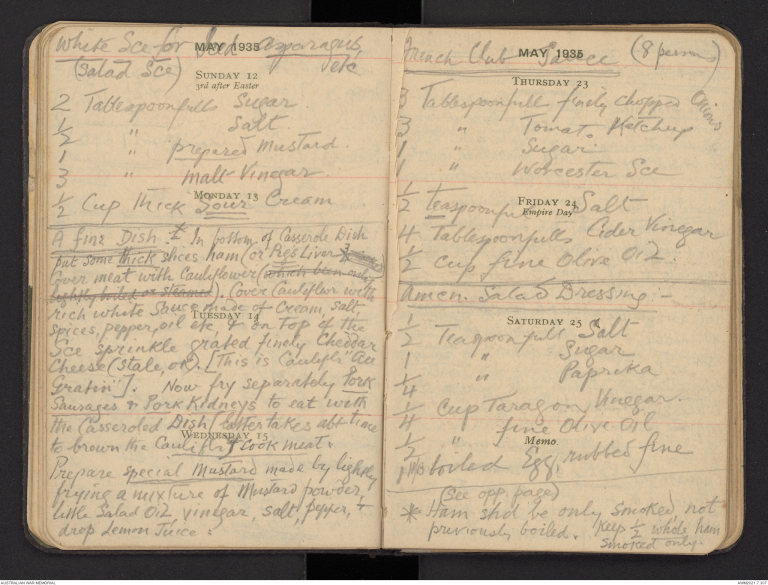 White Sce for Iced Asparagus,
MAY 1935
(Salad Sce) etc
SUNDAY 12
3rd after Easter
2 Tablespoonfulls Sugar.
1/2 " Salt
1 " prepared Mustard.
3 " malt Vinegar.
MONDAY 13
1/2 Cup thick Sour Cream
A fine Dish. In bottom of Casserole Dish
put some thick slices ham (or Pig's Liver
Cover meat with Cauliflower (which been only
lightly boiled or steamed). Cover Cauliflwr with
rich white Sauce made of Cream, salt,
TUESDAY 14
spices, pepper, oil etc, & on top of the
Sce sprinkle grated finely Cheddar
Cheese (stale, ok). [This is Caulifl: "Au
Gratin"]. Now fry separately Pork
Sausages & Pork Kidneys to eat with
the Casseroled Dish/ latter takes abt time
WEDNESDAY 15
to brown the Caulifl & Cook meat.
Prepare special Mustard made by lightly
frying a mixture of Mustard powder,
little Salad Oil vinegar, salt, pepper, &
drop Lemon Juice:
French Club Sauce (8 persons)
MAY 1935
THURSDAY 23
3 Tablespoonfull finely chopped Onions
3 " Tomato Ketchup
1 " Sugar
1 " Worcester Sce
FRIDAY 24
Empire Day
1/2 teaspoonful Salt
4 Tablespoonfulls Cider Vinegar
1/2 cup fine Olive Oil.
Amen. Salad Dressing:-
SATURDAY 25
1/2 Teaspoonfull Salt
1 " Sugar
1/4 " Paprika
1/4 Cup Taragon Vinegar.
1/2 " fine Olive Oil
MEMO.
1 boiled Egg, rubbed fine
(see opp. page)
* Ham shd be only smoked, not
previously boiled. (Keep 1/2 whole ham
smoked only.
AUSTRALIAN WAR MEMORIAL